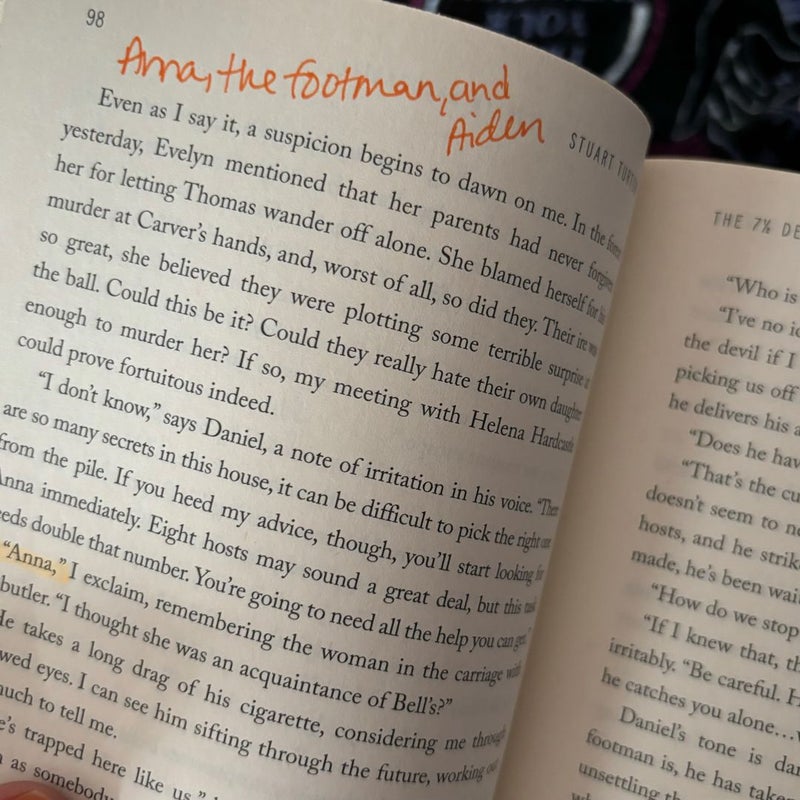 98
Anna, the footman, and
Aiden
STUART
Even as I say it, a suspicion begins to dawn on me. In the
yesterday, Evelyn mentioned that her parents had never
her for letting Thomas wander off alone. She blamed herself for his
murder at Carver's hands, and, worst of all, so did they. Their ire was
so great, she believed they were plotting some terrible surprise at
the ball. Could this be it? Could they really hate their own daughter
enough to murder her? If so, my meeting with Helena Hardcastle
could prove fortuitous indeed.
"I don't know," says Daniel, a note of irritation in his voice.
are so many secrets in this house, it can be difficult to pick the right one
from the pile. If you heed my advice, though, you'll start looking for
Anna immediately. Eight hosts may sound a great deal, but this task
needs double that number. You're going to need all the help you can get."
"Anna," I exclaim, remembering the woman in the carriage with
butler. "I thought she was an acquaintance of Bell's?"
He takes a long drag of his cigarette, considering me through
eyes. I can see him sifting through the future, working out
much to tell me.
trapped here like us,"
as somebody
THE 7½
"Who is
"I've no
the devil if I
picking us off
he delivers his
"Does he
"That's the
doesn't seem to
hosts, and he
made, he's been
"How do we stop
"If I knew that,
irritably. "Be careful.
he catches you alone…
Daniel's tone is
footman is, he has
unsettling